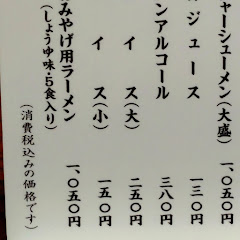 ャーシューメン(大盛) 一、〇五〇円
ジュース 一三〇円
ンアルコール 三八〇円
イス(大) 二五〇円
イス(小) 一五〇円
みやげ用ラーメン 一、〇五〇円
(しょうゆ味・5食入り)
(消費税込みの価格です)